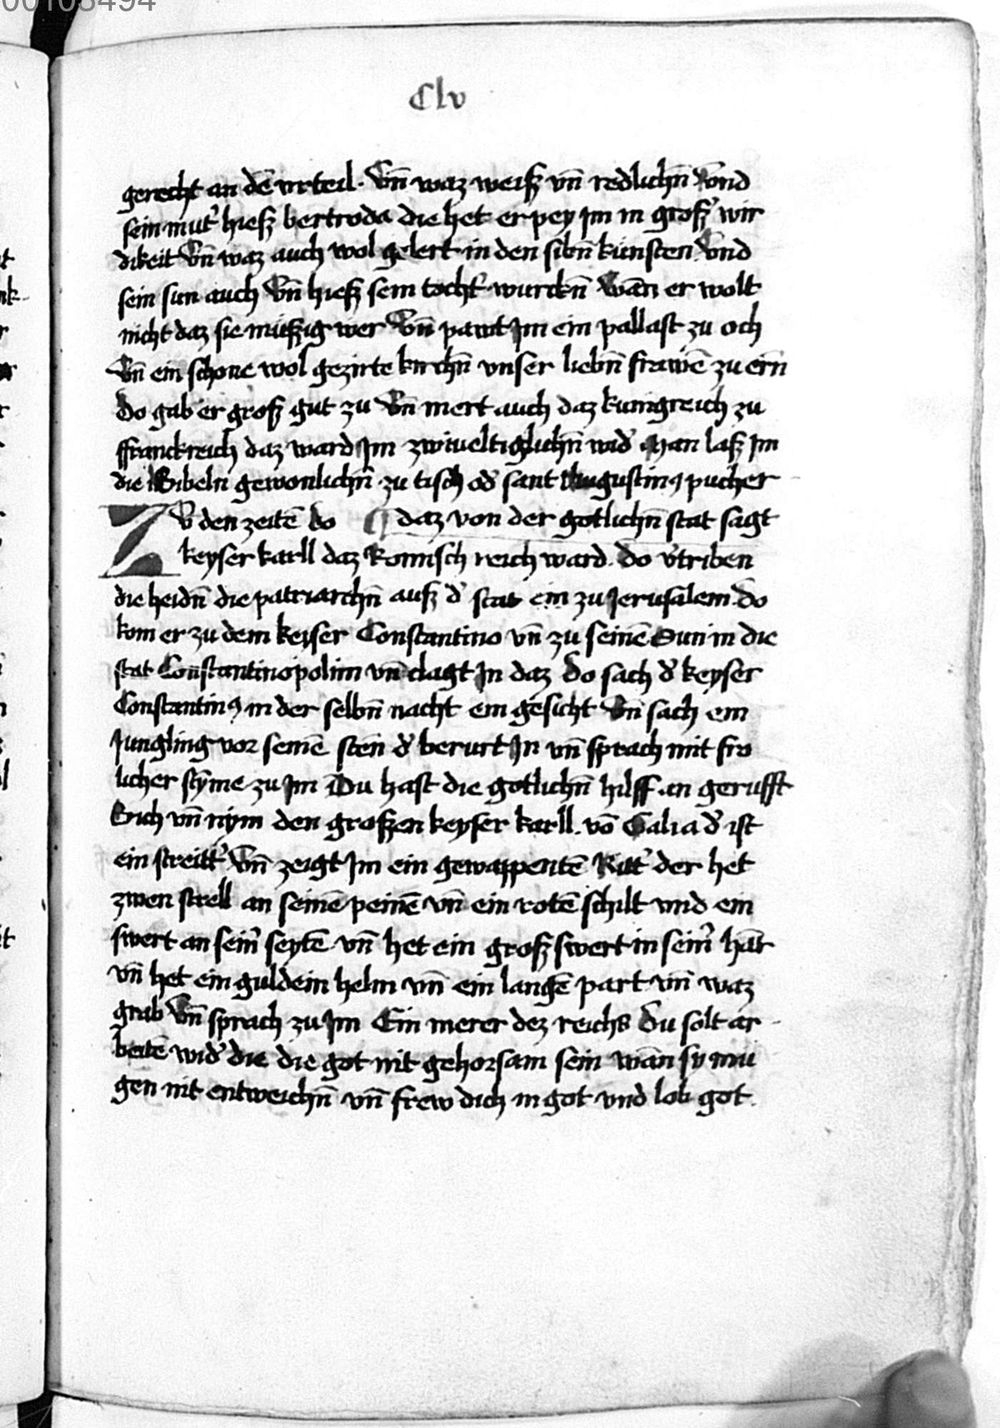 00103494
Clv
gerecht an dē vrteil · Vn̄ waz weiß vn̄ redlichn̄ Vnd
sein mut' hieß bertroda die het er pey Im in groß' wir
dikeit Vn̄ waz auch wol gelert in den sibn̄ kunsten Vnd
sein sun auch Vn̄ hieß sein tocht' wurckn̄ Wān er wolt
nicht daz sie müßig wer Vn̄ pawt Im ein pallast zu och
Vn̄ ein schone wol gezirte kirchn̄ vnser liebn̄ frawē zu ern̄
Do gab er groß gut zu Vn̄ mert auch daz kunigreich zu
ffranckreich daz ward Im zwiueltiglichn̄ wid' Man laß Im
die Bibeln gewonlichn̄ zu tisch od' sant Augustin9 pucher
ZV den zeitē do ¶ daz von der gotlichn̄ stat sagt
keyser karll daz Romisch reich ward · do v'triben
die heidn̄ die patriarchn̄ auß d' stat ein zu Jerusalem · do
kom er zu dem keyser Constantino vn̄ zu seinē Sun in die
stat Constantinopolim vn̄ clagt In daz Do sach d' keyser
Constantin9 in der selbn̄ nacht ein gesicht Vn̄ sach ein
Jungling vor seinē stēn d' berurt In vn̄ sprach mit fro
licher stȳme zu Im Du hast die gotlichn̄ hilff an gerufft
Sich vn̄ nym den großen keyser karll · vō Galia d' ist
ein streitt' Vn̄ zeigt Im ein gewappentē Ritt' der het
zwen strell an seinē peinē vn̄ ein rotē schilt vnd ein
swert an sein' seytē vn̄ het ein groß swert in sein' hāt
vn̄ het ein guldein helm vn̄ ein langē part vn̄ waz
grab Vn̄ sprach zu Im Ein merer dez reichs du solt ar
beitē wid' die die got nit gehorsam sein wān sy mu
gen nit entweichn̄ vn̄ frew dich in got vnd lob got ·